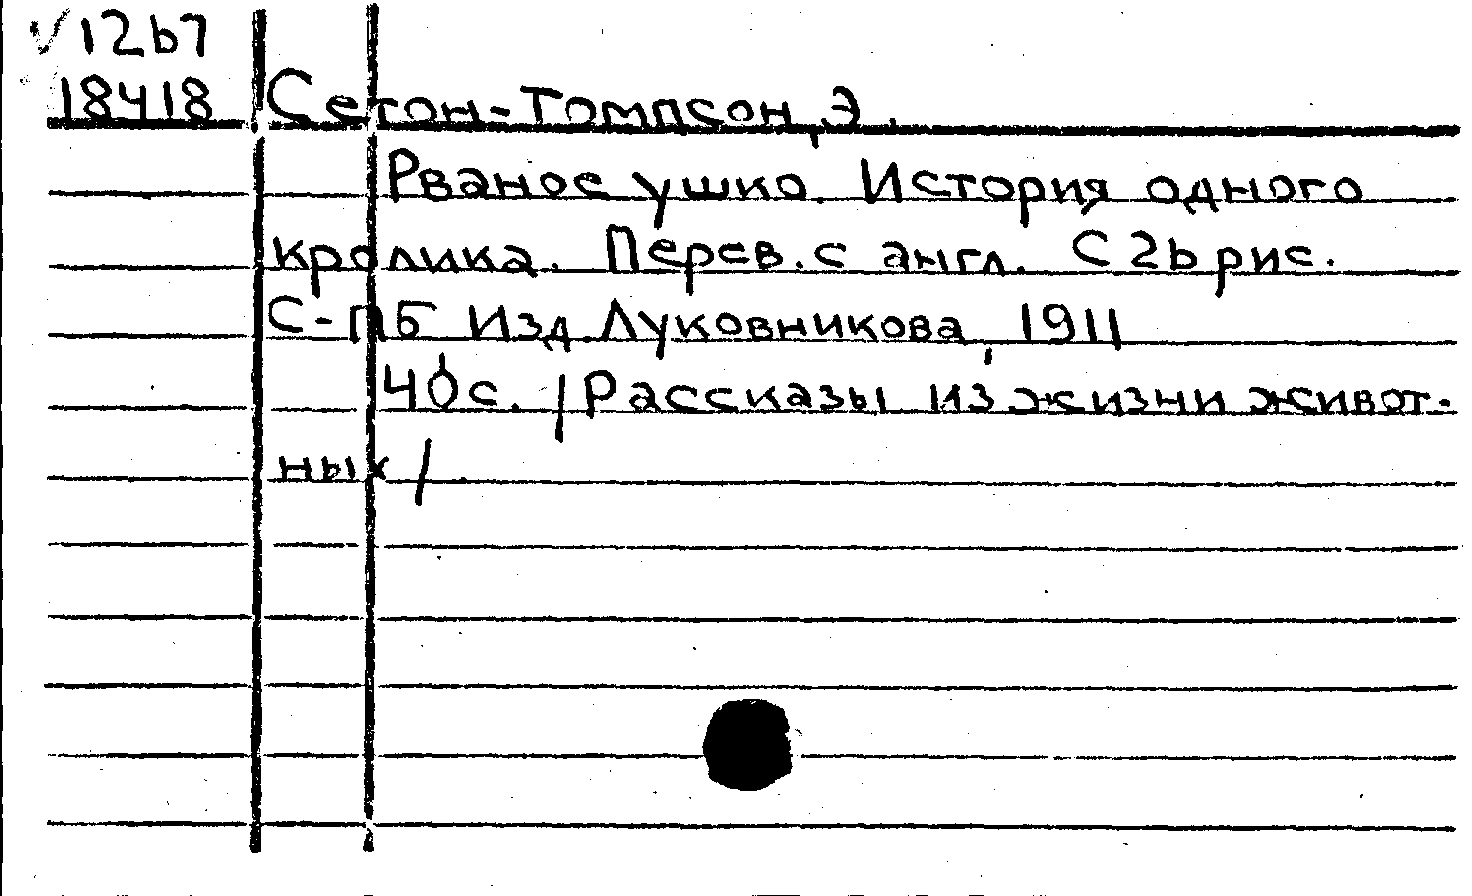 √1267
18418 Сетон-Томпсон, Э.
Рваное ушко. История одного
кролика. Перев. с англ. С 26 рис.
С-ПБ Изд. Луковникова, 1911
40 с. /Рассказы из жизни живот-
ных/